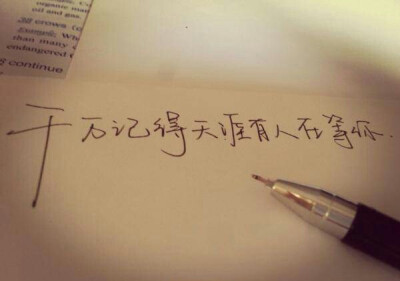 organic mat
oil and gas.
38 crows (c
Example: Wh
than many
endangered
continue
千万记得天涯有人在等你.